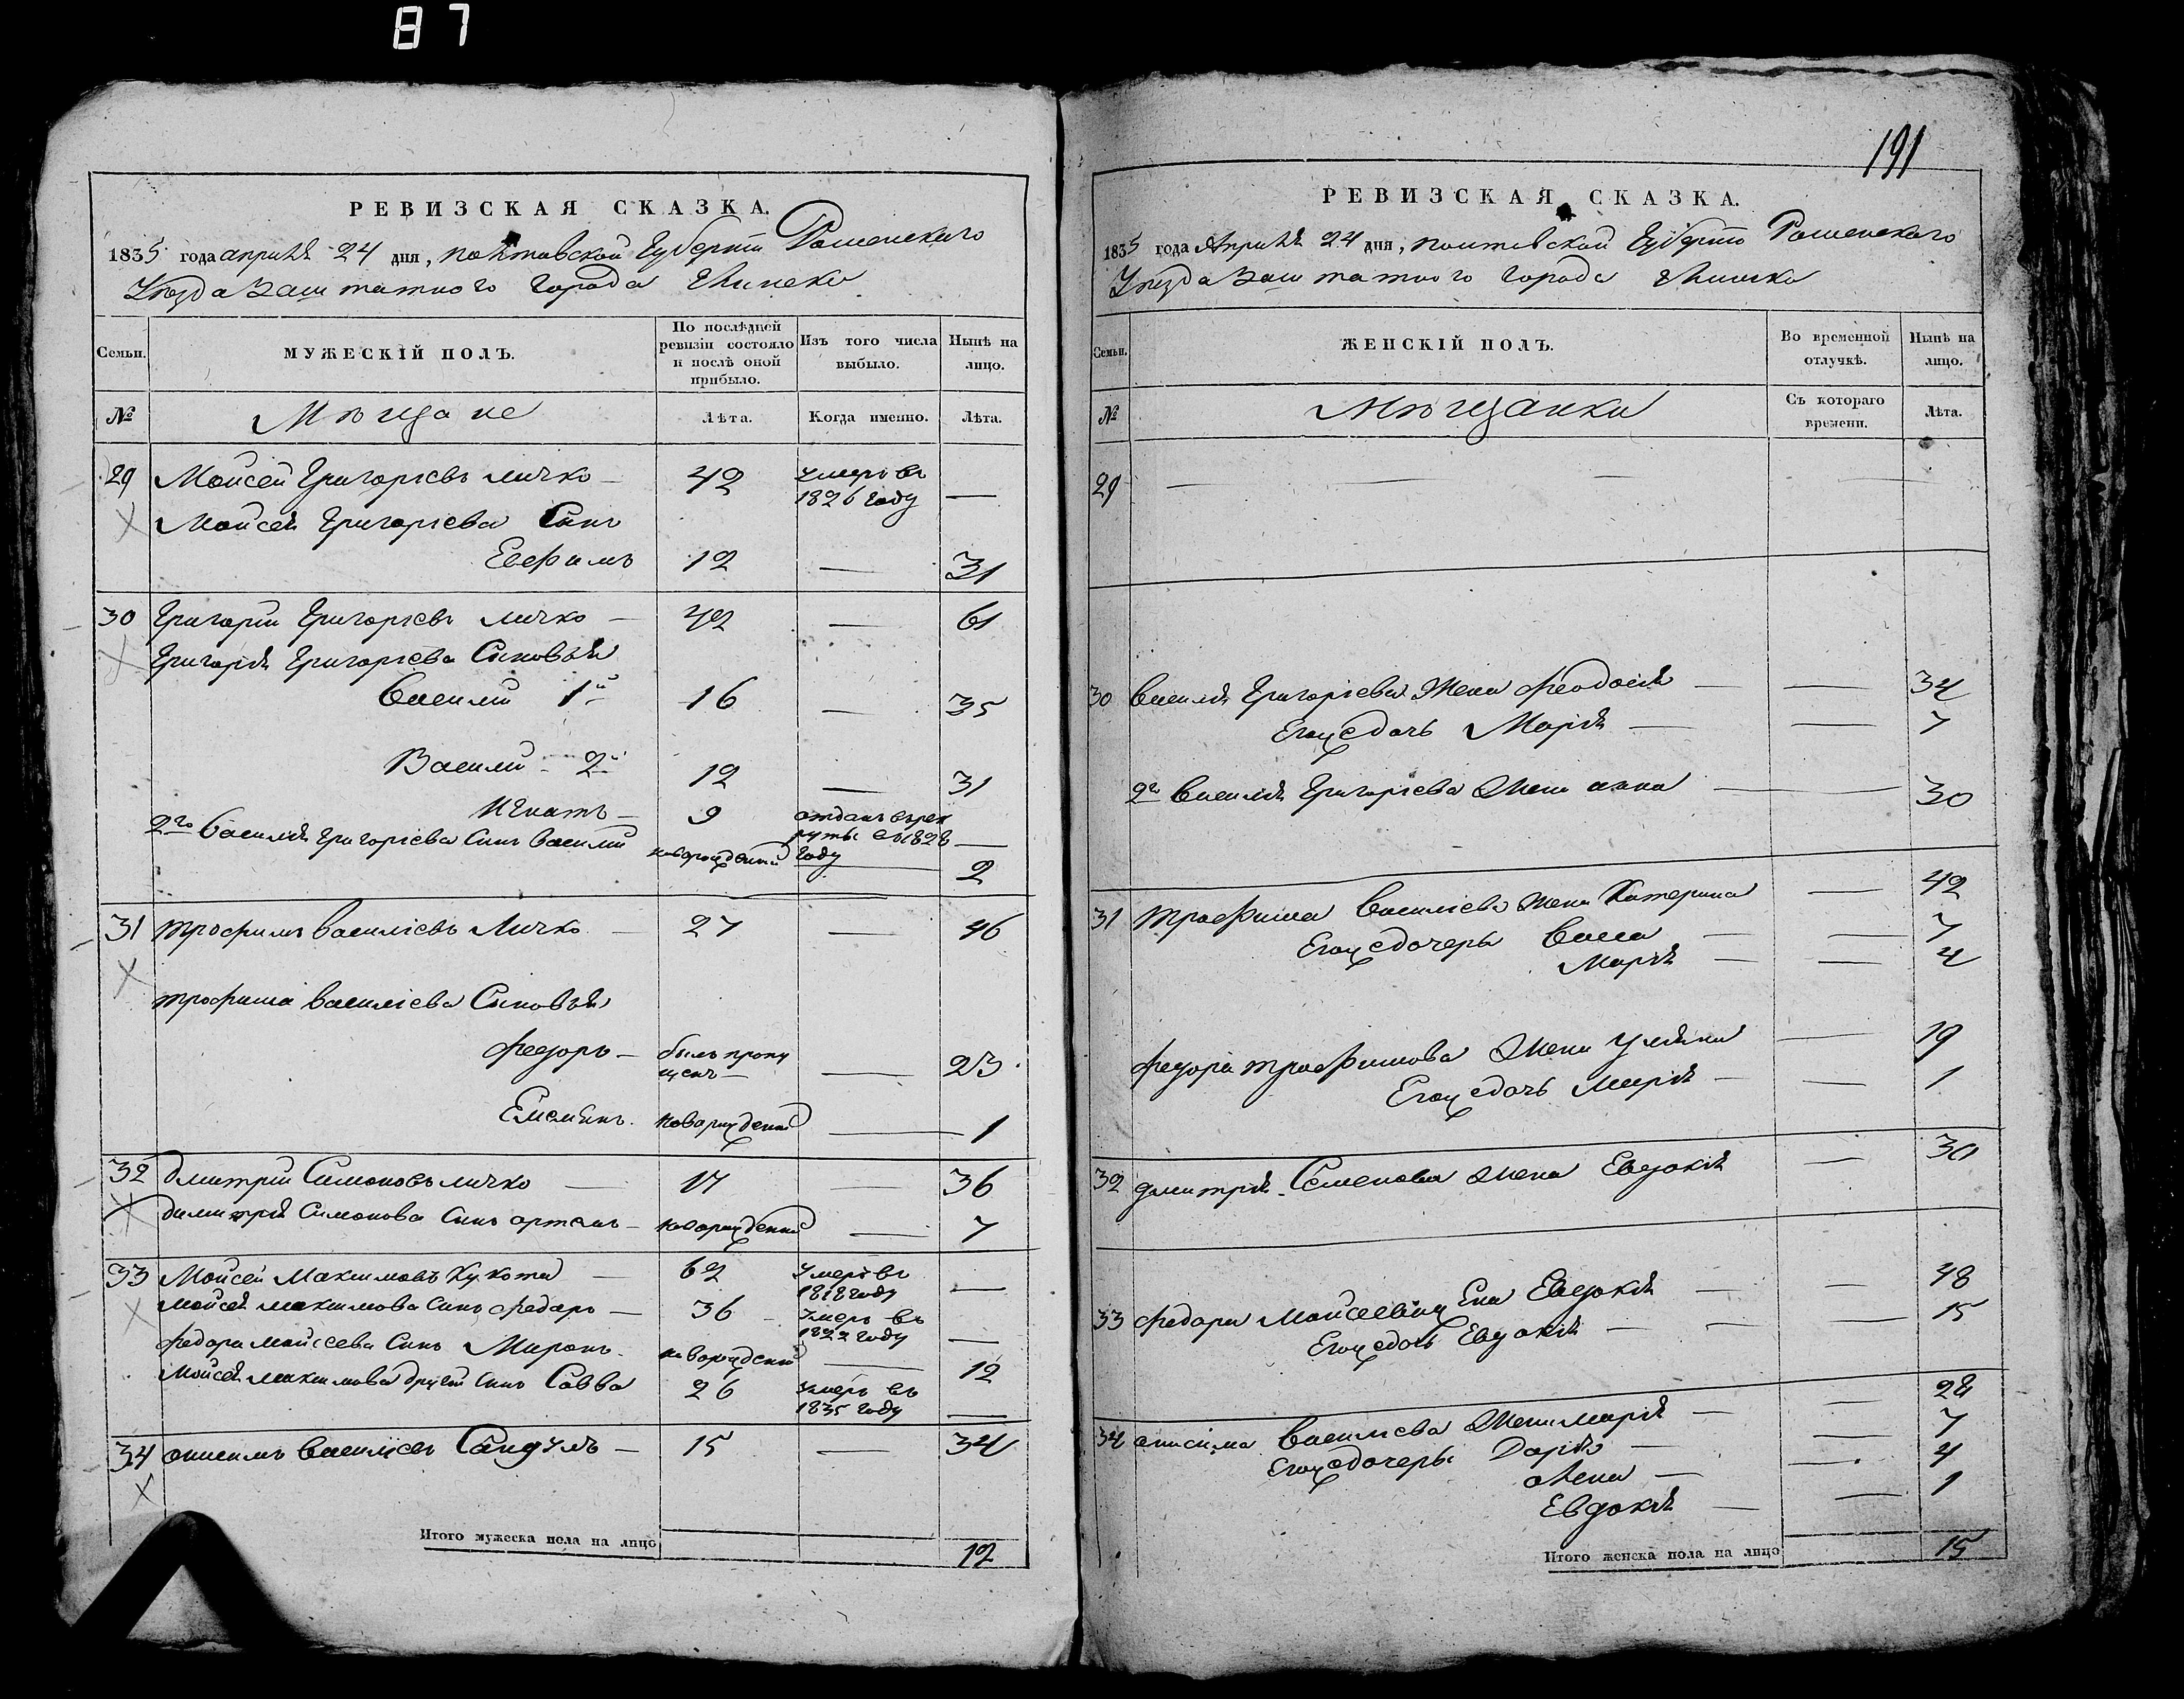 87
РЕВИЗСКАЯ СКАЗКА.
1835 года апреля 24 дня, полтавской Губернии Роменского
Уезда Заштатного города Глинска
Семьи. МУЖЕСКІЙ ПОЛЪ. По послѣдней ревизіи состояло и послѣ оной прибыло. Изъ того числа выбыло. Нынѣ на лицо.
№ Мѣщане Лѣта. Когда именно. Лѣта.
29 Моисей Григорьевъ Личко — 42 умеръ въ 1826 году —
Моисея Григорьева Сынъ
Евфимъ 12 — 31
30 Григорій Григорьевъ личко — 42 — 61
Григорія Григорьева Сыновья
Василий 1й 16 — 35
Василий 2й 12 — 31
Игнатъ — 9 отданъ въ рекруты въ 1828 году —
2го Василія Григорьева Сынъ Василий новорожденный — 2
31 трофимъ Василіевъ Личко — 27 — 46
трофима Василіева Сыновья
Федоръ — былъ пропущенъ — — 23
Емельянъ новорожденный — 1
32 Дмитрій Симоновъ личко — 17 — 36
Димитрія Симонова Сынъ артемъ — новорожденный — 7
33 Моисей Максимовъ Кукота — 62 умеръ въ 1818 году —
Моисея максимова Сынъ Федоръ — 36 умеръ въ 1822 году —
Федора Моисеева Сынъ Миронъ — новорожденный — 12
Моисея максимова другой Сынъ Савва 26 умеръ въ 1835 году —
34 онисимъ Василіевъ Сандулъ — 15 — 34
Итого мужеска пола на лицо 12
191
РЕВИЗСКАЯ СКАЗКА.
1835 года Апреля 24 дня, полтавской Губернии Роменского
Уезда Заштатного города Глинска
Семьи. ЖЕНСКІЙ ПОЛЪ. Во временной отлучкѣ. Нынѣ на лицо.
№ Мѣщанки Съ котораго времени. Лѣта.
29 — — — —
30 Василія Григорьева Жена Феодосія — — 34
Егожедочь Марія — — 7
2го Василія Григорьева Жена анна — — 30
31 трофима Василіева жена Катерина — 42
Егожедочеры Васса — — 7
Марія — — 4
Федора трофимова Жена Уляна — 19
Егожедочь Марія — — 1
32 дмитрія Семенова Жена Евдокія — 30
33 Федора Моисеева Жена Евдокія — — 48
Егожедочь Евдокія — — 15
34 онисима Василіева Жена Марія — — 28
Егожедочеры Дарія — — 7
Елена — — 4
Евдокія — — 1
Итого женска пола на лицо 15